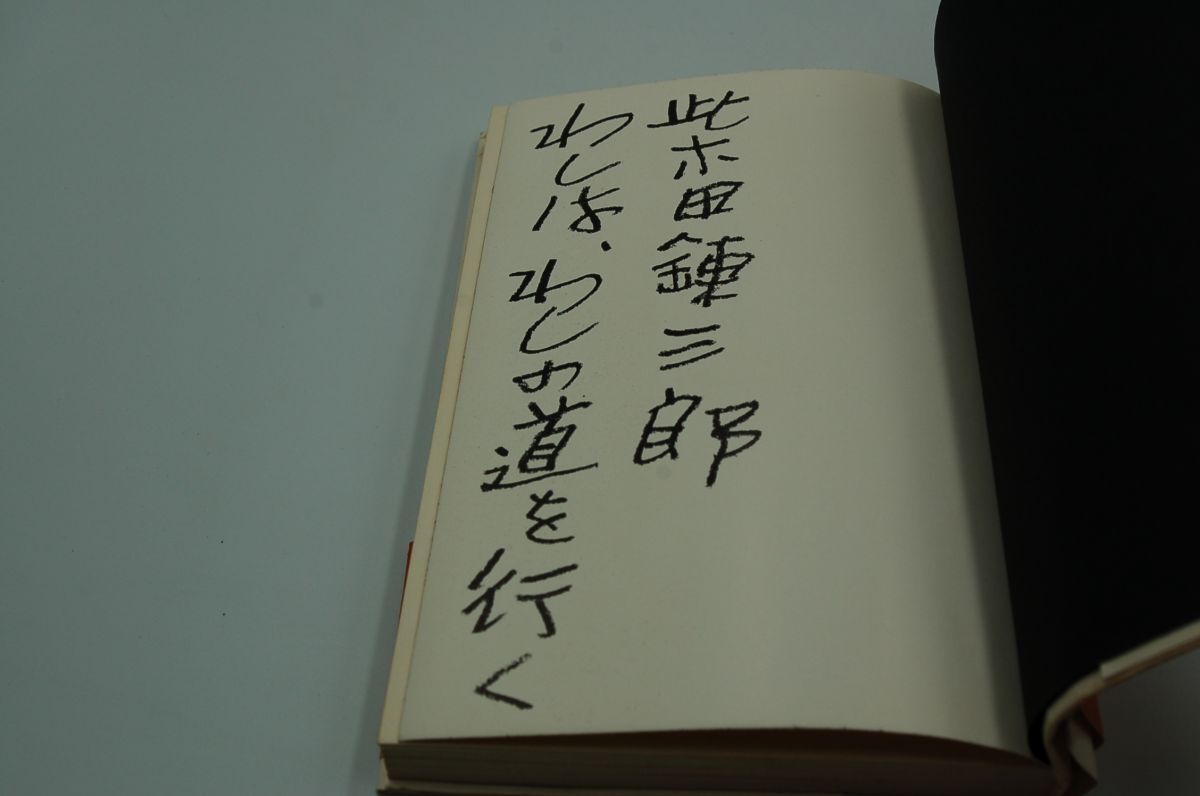 柴田錬三郎
わしは、わしの道を行く